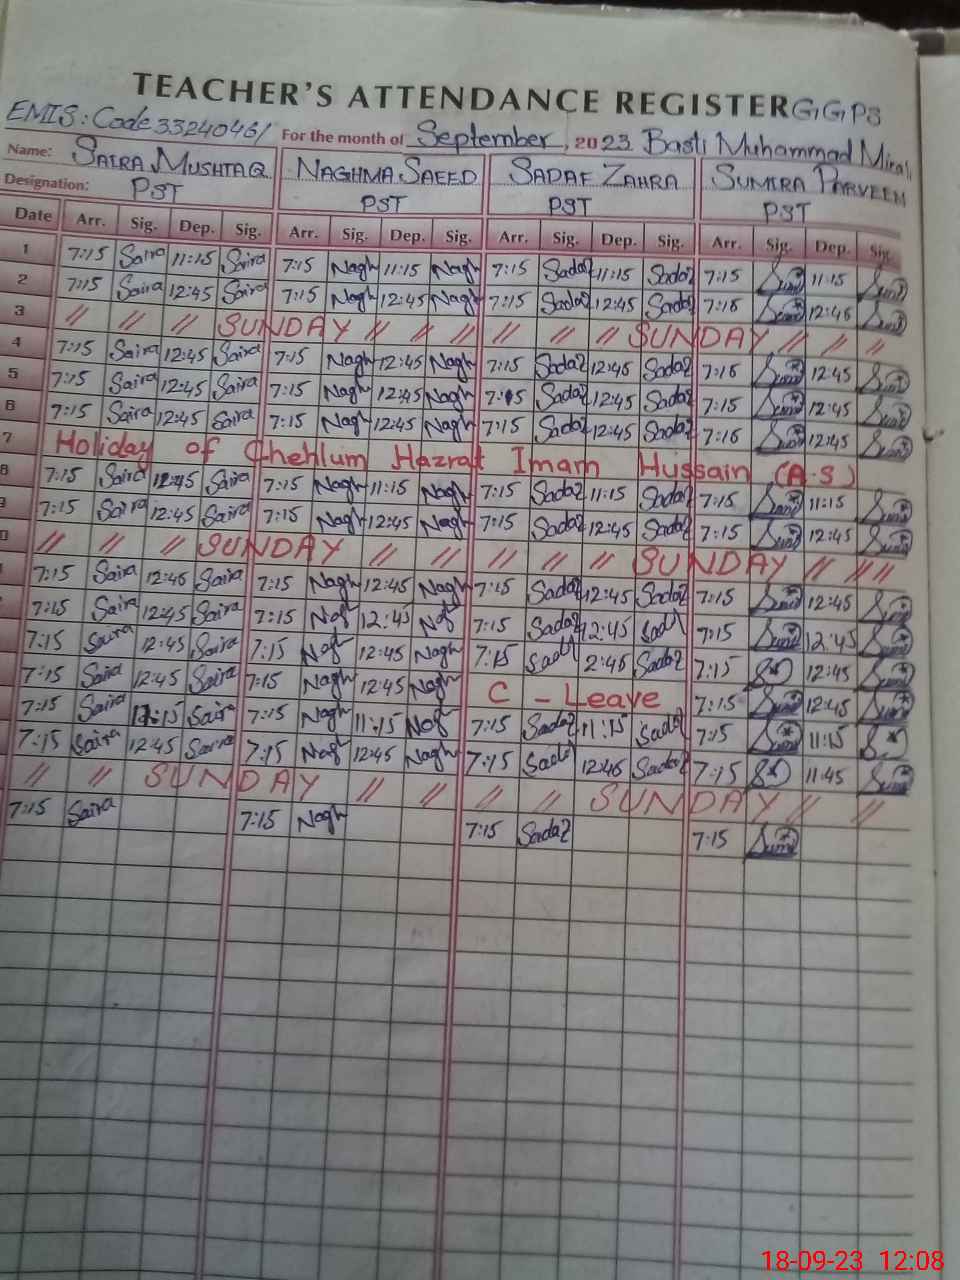 TEACHER'S ATTENDANCE REGISTER GGPS
EMIS: Code 33240461 For the month of September, 2023 Basti Muhammad Mirali
Name: SAIRA MUSHTAQ NAGHMA SAEED SADAF ZAHRA SUMIRA PARVEEN
Designation: PST PST PST PST
Date Arr. Sig. Dep. Sig. Arr. Sig. Dep. Sig. Arr. Sig. Dep. Sig. Arr. Sig. Dep. Sig.
1 7:15 Saira 11:15 Saira 7:15 Nagh 11:15 Nagh 7:15 Sadaf 11:15 Sadaf 7:15 Sumi 11:15 Sumi
2 7:15 Saira 12:45 Saira 7:15 Nagh 12:45 Nagh 7:15 Sadaf 12:45 Sadaf 7:15 Sumi 12:45 Sumi
3 // // // SUNDAY // // // // // // SUNDAY // // //
4 7:15 Saira 12:45 Saira 7:15 Nagh 12:45 Nagh 7:15 Sadaf 12:45 Sadaf 7:15 Sumi 12:45 Sumi
5 7:15 Saira 12:45 Saira 7:15 Nagh 12:45 Nagh 7:15 Sadaf 12:45 Sadaf 7:15 Sumi 12:45 Sumi
6 7:15 Saira 12:45 Saira 7:15 Nagh 12:45 Nagh 7:15 Sadaf 12:45 Sadaf 7:15 Sumi 12:45 Sumi
7 Holiday of Chehlum Hazrat Imam Hussain (A.S)
8 7:15 Saira 12:45 Saira 7:15 Nagh 11:15 Nagh 7:15 Sadaf 11:15 Sadaf 7:15 Sumi 11:15 Sumi
7:15 Saira 12:45 Saira 7:15 Nagh 12:45 Nagh 7:15 Sadaf 12:45 Sadaf 7:15 Sumi 12:45 Sumi
0 // // // SUNDAY // // // // // SUNDAY // // //
7:15 Saira 12:45 Saira 7:15 Nagh 12:45 Nagh 7:15 Sadaf 12:45 Sadaf 7:15 Sumi 12:45 Sumi
7:15 Saira 12:45 Saira 7:15 Nagh 12:45 Nagh 7:15 Sadaf 12:45 Sadaf 7:15 Sumi 12:45 Sumi
7:15 Saira 12:45 Saira 7:15 Nagh 12:45 Nagh 7:15 Sadaf 2:45 Sadaf 7:15 12:45 Sumi
7:15 Saira 12:45 Saira 7:15 Nagh 12:45 Nagh C - Leave 7:15 Sumi 12:45 Sumi
7:15 Saira 11:15 Saira 7:15 Nagh 11:15 Nagh 7:15 Sadaf 11:15 Sadaf 7:15 Sumi 11:15
7:15 Saira 12:45 Saira 7:15 Nagh 12:45 Nagh 7:15 Sadaf 12:45 Sadaf 7:15 11:45 Sumi
// // SUNDAY // // // // SUNDAY // //
7:15 Saira 7:15 Nagh 7:15 Sadaf 7:15 Sumi
18-09-23 12:08